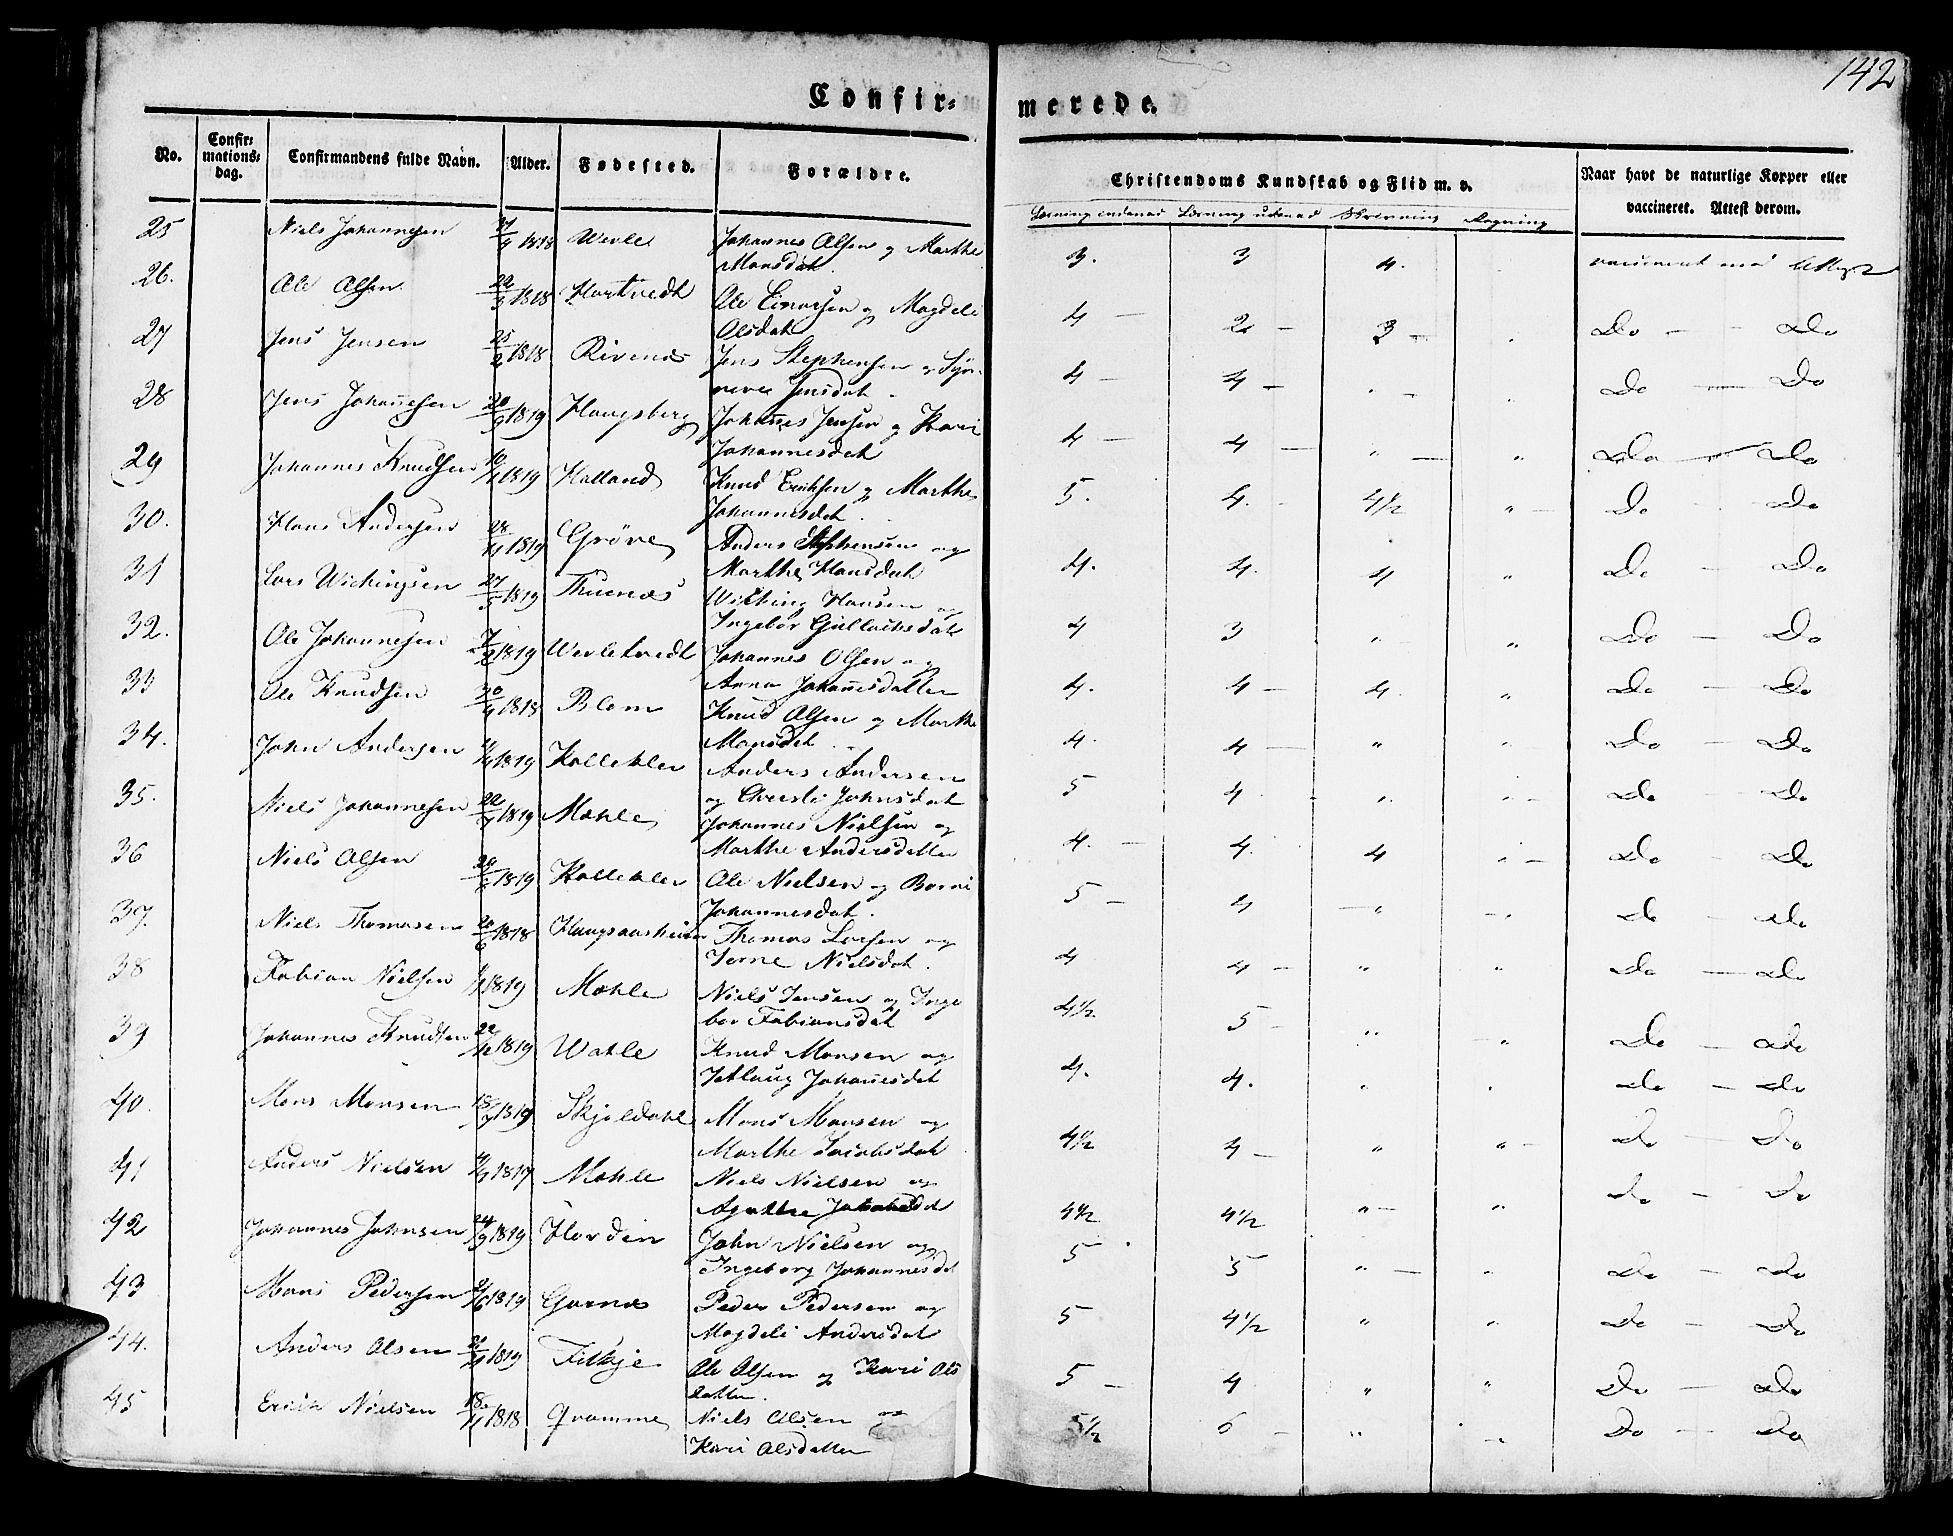 142
Confir= merede.
No. Confir= mations= dag. Confirmandens fulde Navn. Alder. Fødested. Forældre. Christendoms Kundskab og Flid m. v. Naar havt de naturlige Kopper eller vaccineret. Attest derom.
Læsning indenad Læsning udenad Skrivning Regning
25 Niels Johannesen 1818 Wevle Johannes Olsen og Marthe 3. 3 4.
Monsdat.
26. Ole Olsen 1818 Hartvedt Ole Einarsen og Magdeli 4 — 2 — 3 — Do — Do
Olsdat
27 Jens Jensen 25/2 1818 Rivenæs Jens Stephensen og Syn= 4 — 4 — Do — Do
neve Jensdat.
28 Jens Johannesen 1819 Haugsberg Johannes Jensen og Kari 4 — 4 — " — " Do — Do
Johannesdat
29 Johannes Knudsen 1819 Holland Knud Eriksen og Marthe 5. 4. 4½ " Do - Do
Johannesdat.
30. Hans Andersen 1819 Grøve Anders Stephensen og 4. 4. 4 " Do - Do
Marthe Hansdat
31 Lars Wichingsen 27/5 1819 Thuenæs Wiching Hansen og 4 3 " " Do — Do
Ingebor Gullachsdat
32. Ole Johannesen 1819 Wevletvedt Johannes Olsen og 4. 4 — 4. " Do — Do
Anna Johannesdatter
33 Ole Knudsen 1818 Blom Knud Olsen og Marthe 4. 4 — " " Do — Do
Monsdat.
34. John Andersen 1819 Kallekler Anders Andersen 5 4 " Do — Do
og Christi Johnsdat
35. Niels Johannesen 1819 Mæhle Johannes Nielsen og 4. — 4. 4 Do - Do
Marthe Andersdatter
36 Niels Olsen 1819 Kallekler Ole Nielsen og Borni 5 — 4 — " Do - do
Johannesdat.
37. Niels Thomasen 1818 Thomas Larsen og 4 4 — " " Do — Do
Nielsdat.
38 Fabian Nielsen 1819 Mæhle Niels Jensen og Inge 4½ 5 — " " Do — do
bor Fabiansdat
39 Johannes Knudsen 1819 Wahle Knud Monsen og 4. 4. " " Do — Do
Johannesdat
40. Mons Monsen 18/7 1819 Skjoldahl Mons Monsen og 4½ 4 — " " — Do — Do
Marthe Jacobsdat
41 Anders Nielsen 1819 Mæhle Niels Nielsen og 4½ 4½ " — " Do — Do
Agathe
42 Johannes Johnsen 24/9 1819 Hordin John Nielsen og 5 5 " — " Do — Do
Ingeborg Johannesdat
43 Mons Pedersen 1819 Garnæs Peder Pedersen og 5 4½ " " Do — Do
Magdeli Andersdat
44. Anders Olsen 1819 Fitkje Ole Olsen og Kari Ols 5 — 4 " " Do — do
datter.
45 Erick Nielsen 18/11 1818 Gramme Niels Olsen og 5½ 6 — " Do — Do
Kari Olsdatter